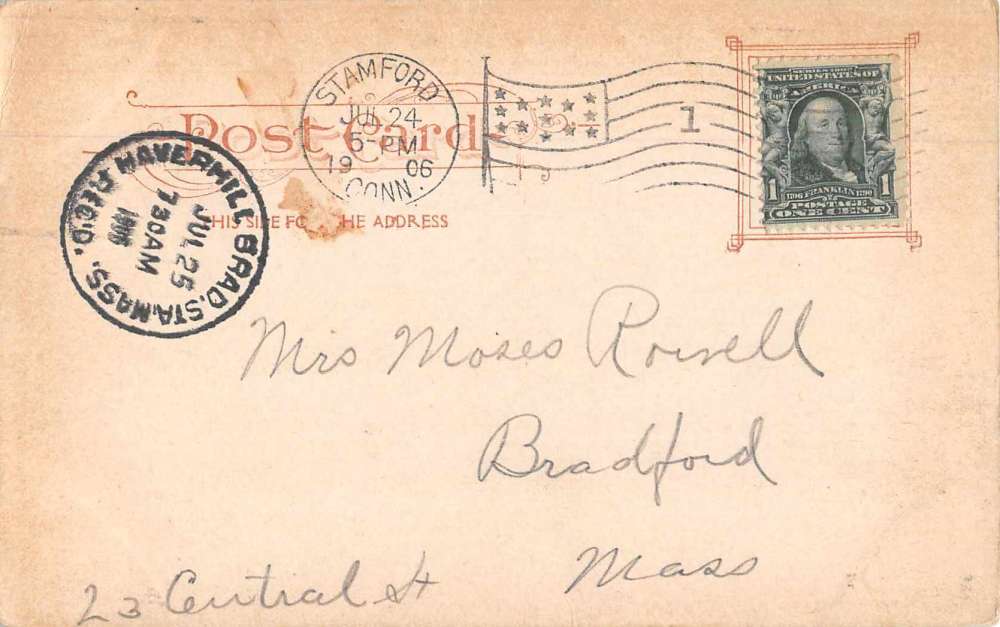 STAMFORD
JUL 24
5-PM
19 06
CONN.
1
SERIES 1902
UNITED STATES OF
AMERICA
1 1706 FRANKLIN 1790 1
POSTAGE
ONE CENT
Post Card
THIS SIDE FO HE ADDRESS
HAVERHILL BRAD. STA. MASS. REC'D.
JUL 25
730 AM
1906
Mrs Moses Rowell
Bradford
Mass
23 Central St